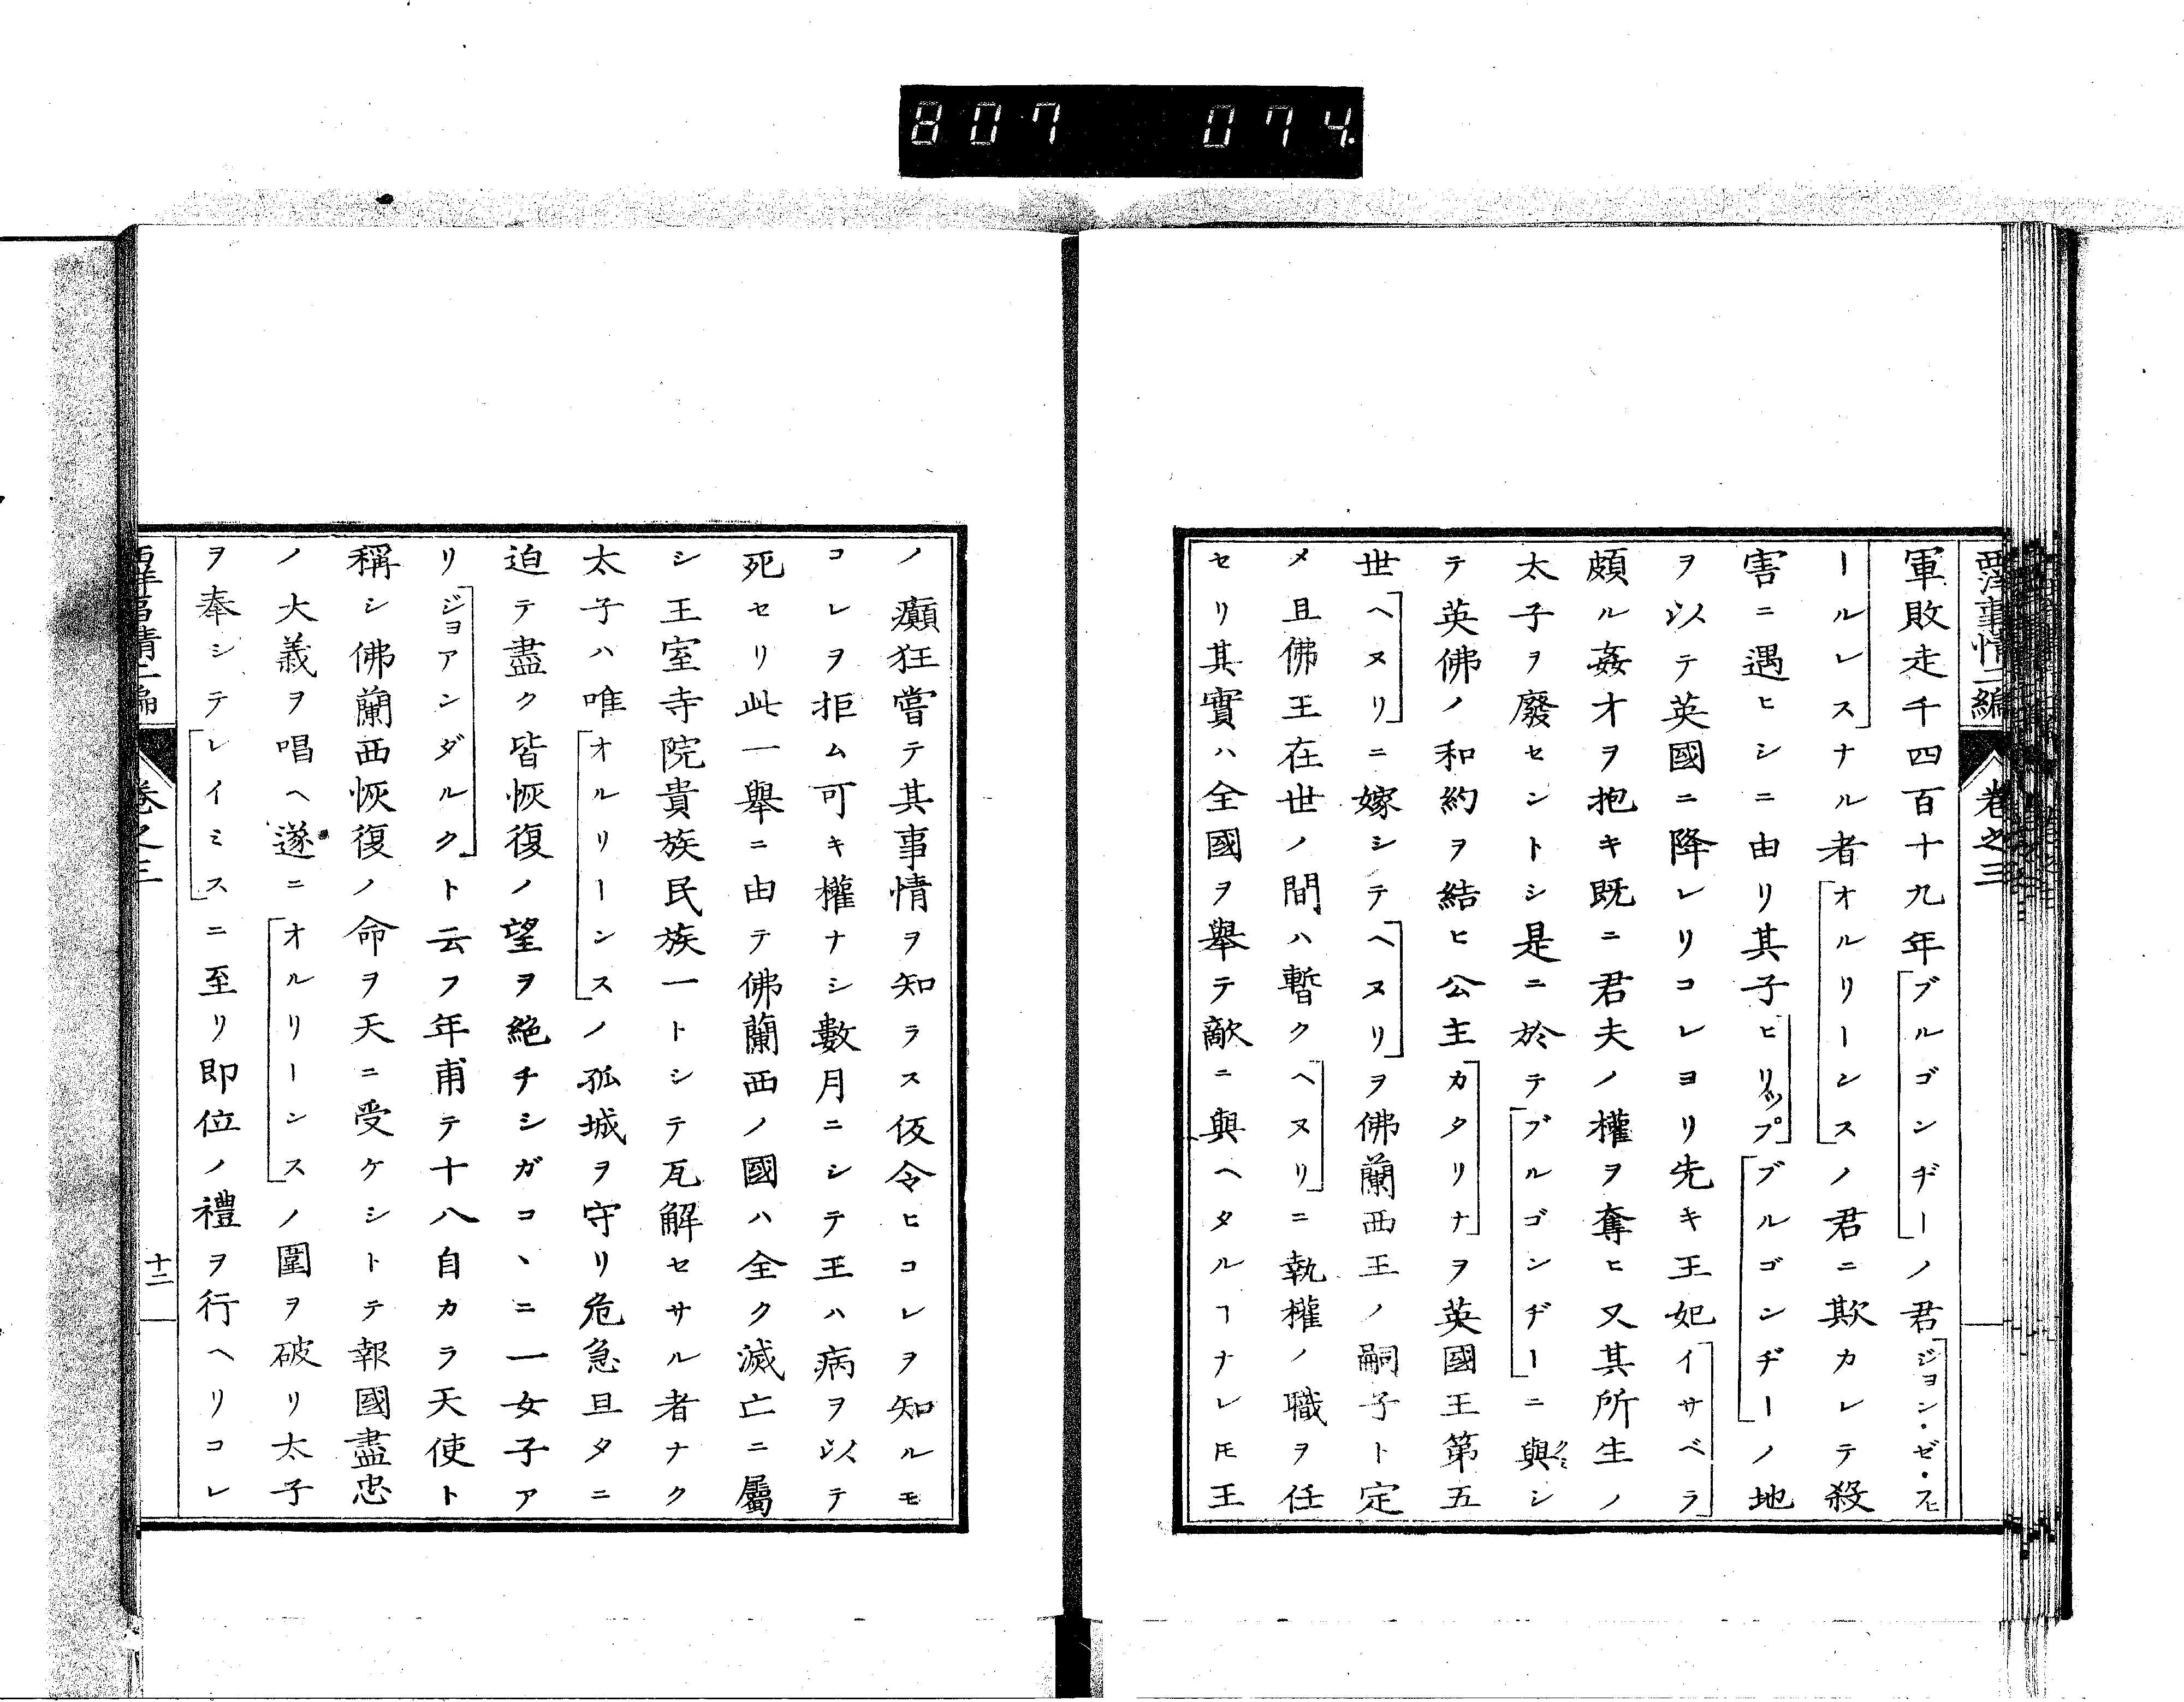 807 074
西洋事情二編 卷之三
軍敗走千四百十九年「ブルゴンヂー」ノ君「ジョン・ゼ・フヒ
ールレス」ナル者「オルリーンス」ノ君ニ欺カレテ殺
害ニ遇ヒシニ由リ其子「ヒリップ」「ブルゴンヂー」ノ地
ヲ以テ英國ニ降レリコレヨリ先キ王妃「イサベラ」
頗ル姦才ヲ抱キ既ニ君夫ノ權ヲ奪ヒ又其所生ノ
太子ヲ廢セントシ是ニ於テ「ブルゴンヂー」ニ與シ
テ英佛ノ和約ヲ結ヒ公主「カタリナ」ヲ英國王第五
世「ヘヌリ」ニ嫁シテ「ヘヌリ」ヲ佛蘭西王ノ嗣子ト定
メ且佛王在世ノ間ハ暫ク「ヘヌリ」ニ執權ノ職ヲ任
セリ其實ハ全國ヲ擧テ敵ニ與ヘタルヿナレ𪜈王
ノ癲狂嘗テ其事情ヲ知ラス仮令ヒコレヲ知ルモ
コレヲ拒ム可キ權ナシ數月ニシテ王ハ病ヲ以テ
死セリ此一擧ニ由テ佛蘭西ノ國ハ全ク滅亡ニ屬
シ王室寺院貴族民族一トシテ瓦解セサル者ナク
太子ハ唯「オルリーンス」ノ孤城ヲ守リ危急旦タニ
迫テ盡ク皆恢復ノ望ヲ絶チシガコヽニ一女子ア
リ「ジョアンダルク」ト云フ年甫テ十八自カラ天使ト
稱シ佛蘭西恢復ノ命ヲ天ニ受ケシトテ報國盡忠
ノ大義ヲ唱ヘ遂ニ「オルリーンス」ノ圍ヲ破リ太子
ヲ奉シテ「レイミス」ニ至リ即位ノ禮ヲ行ヘリコレ
西洋事情二編 卷之三 十二